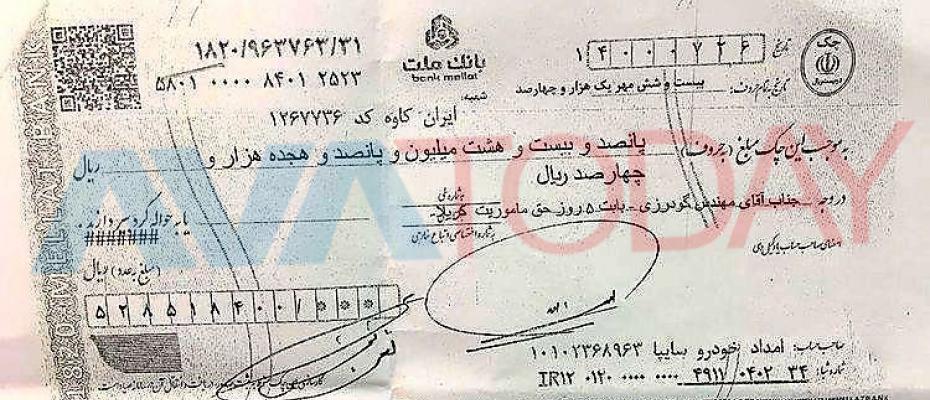 ۱۸۲۰/۹۶۳۷۶۳/۳۱
۵۸۰۱ ۰۰۰۰ ۸۴۰۱ ۲۵۲۳
بانک ملت
bank mellat
شعبه:
ایران کاوه کد ۱۲۶۷۷۳۶
چک
تاریخ ۱۴۰۰۰۷۲۶
تاریخ به تمام حروف: بیست و شش مهر یک هزار و چهارصد
به موجب این چک مبلغ (بحروف) پانصد و بیست و هشت میلیون و پانصد و هجده هزار و چهارصد ریال ریال
در وجه جناب آقای مهندس گودرزی - بابت ۵ روز حق ماموریت کربلا- به شماره ملی یا به حواله کرد بپردازند.
#######
AVATODAY
(مبلغ به عدد) ریال
۵۲۸۵۱۸۴۰۰/***
صاحب حساب: امداد خودرو سایپا ۱۰۱۰۲۳۶۸۹۶۳
IR۱۲ ۰۱۲۰ ۰۰۰۰ ۰۰۰۰ ۴۹۱۱ ۰۴۰۲ ۳۴
1820 MELLAT BANK